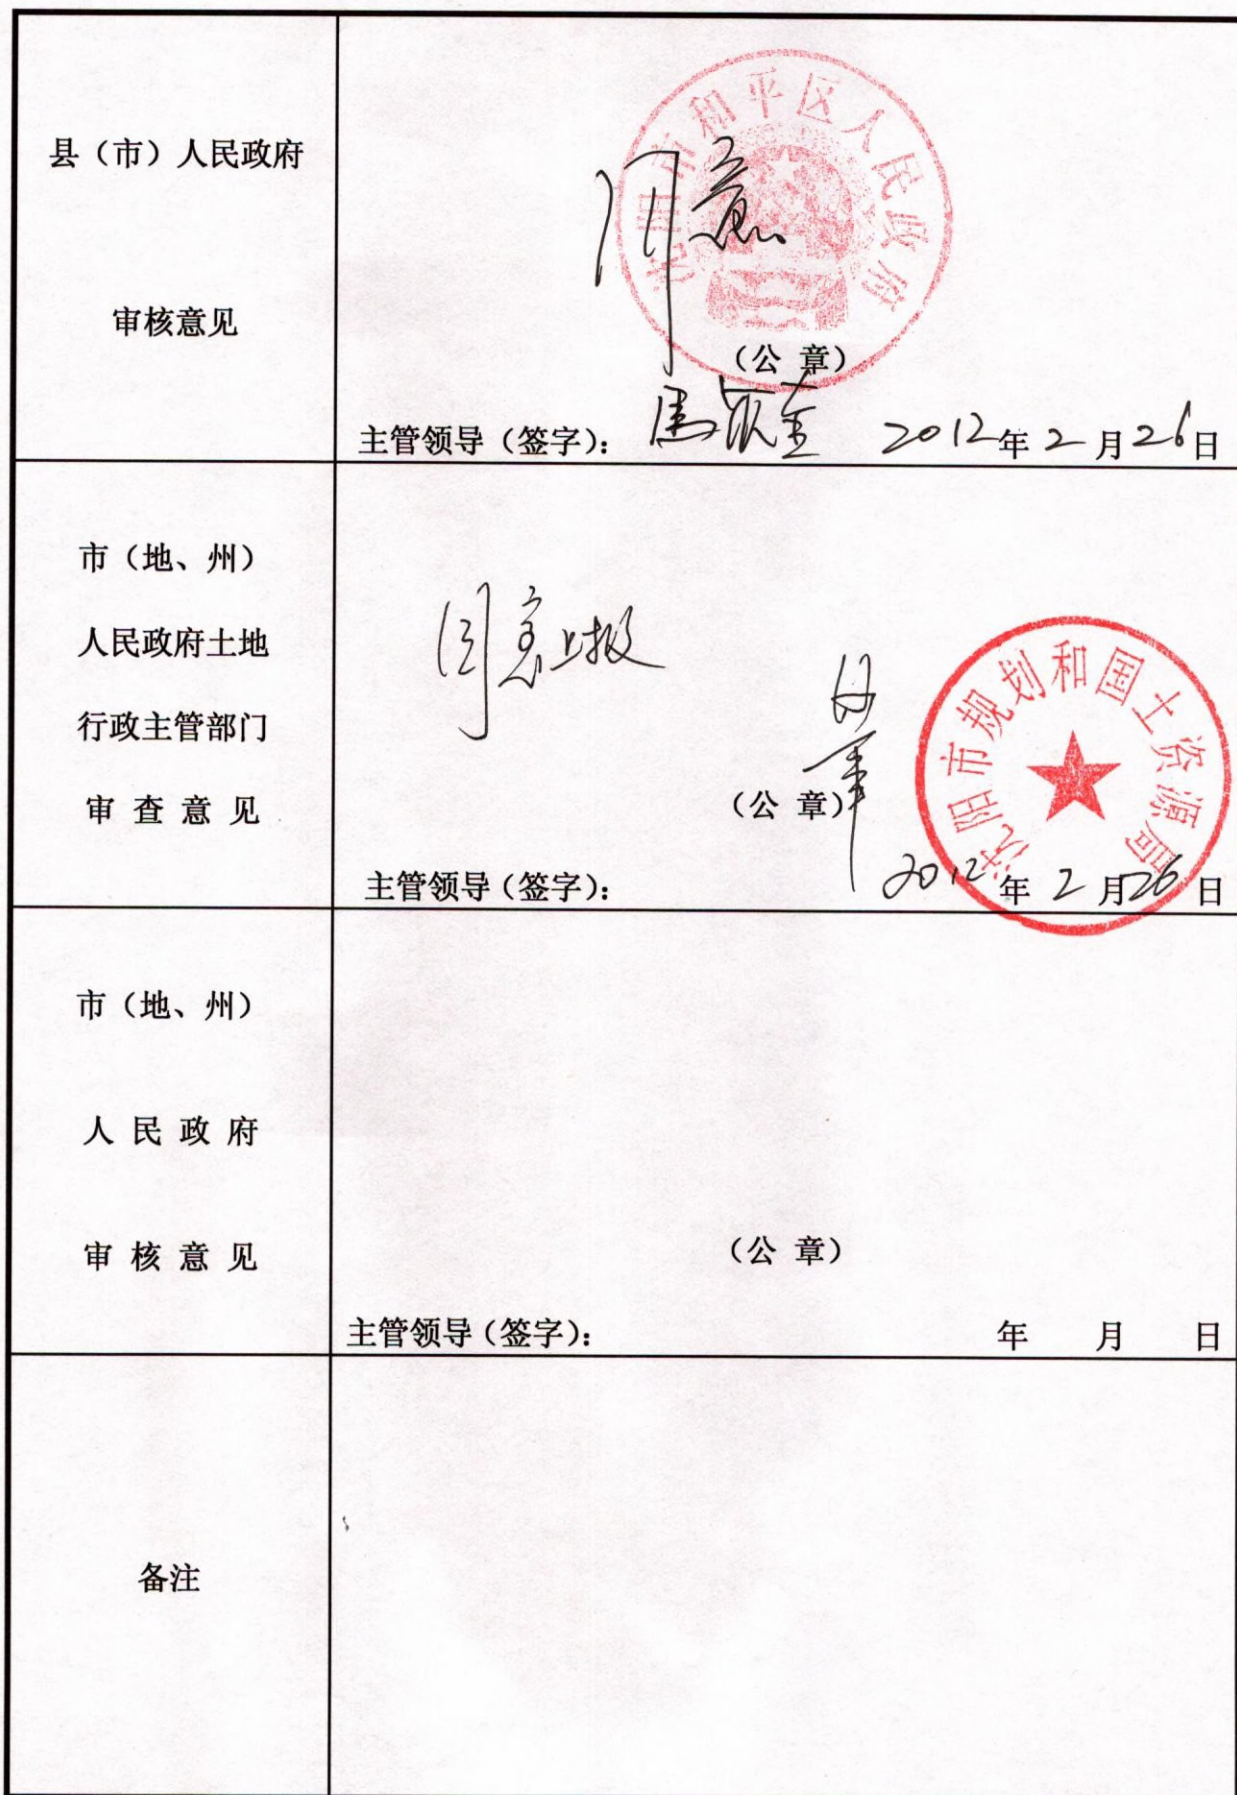 县（市）人民政府
审核意见
沈阳市和平区人民政府
同意
（公 章）
主管领导（签字）： 2012年2月26日
市（地、州）
人民政府土地
行政主管部门
审 查 意 见
同意上报
沈阳市规划和国土资源局
（公 章）
主管领导（签字）： 2012年2月26日
市（地、州）
人 民 政 府
审 核 意 见
（公 章）
主管领导（签字）： 年 月 日
备注